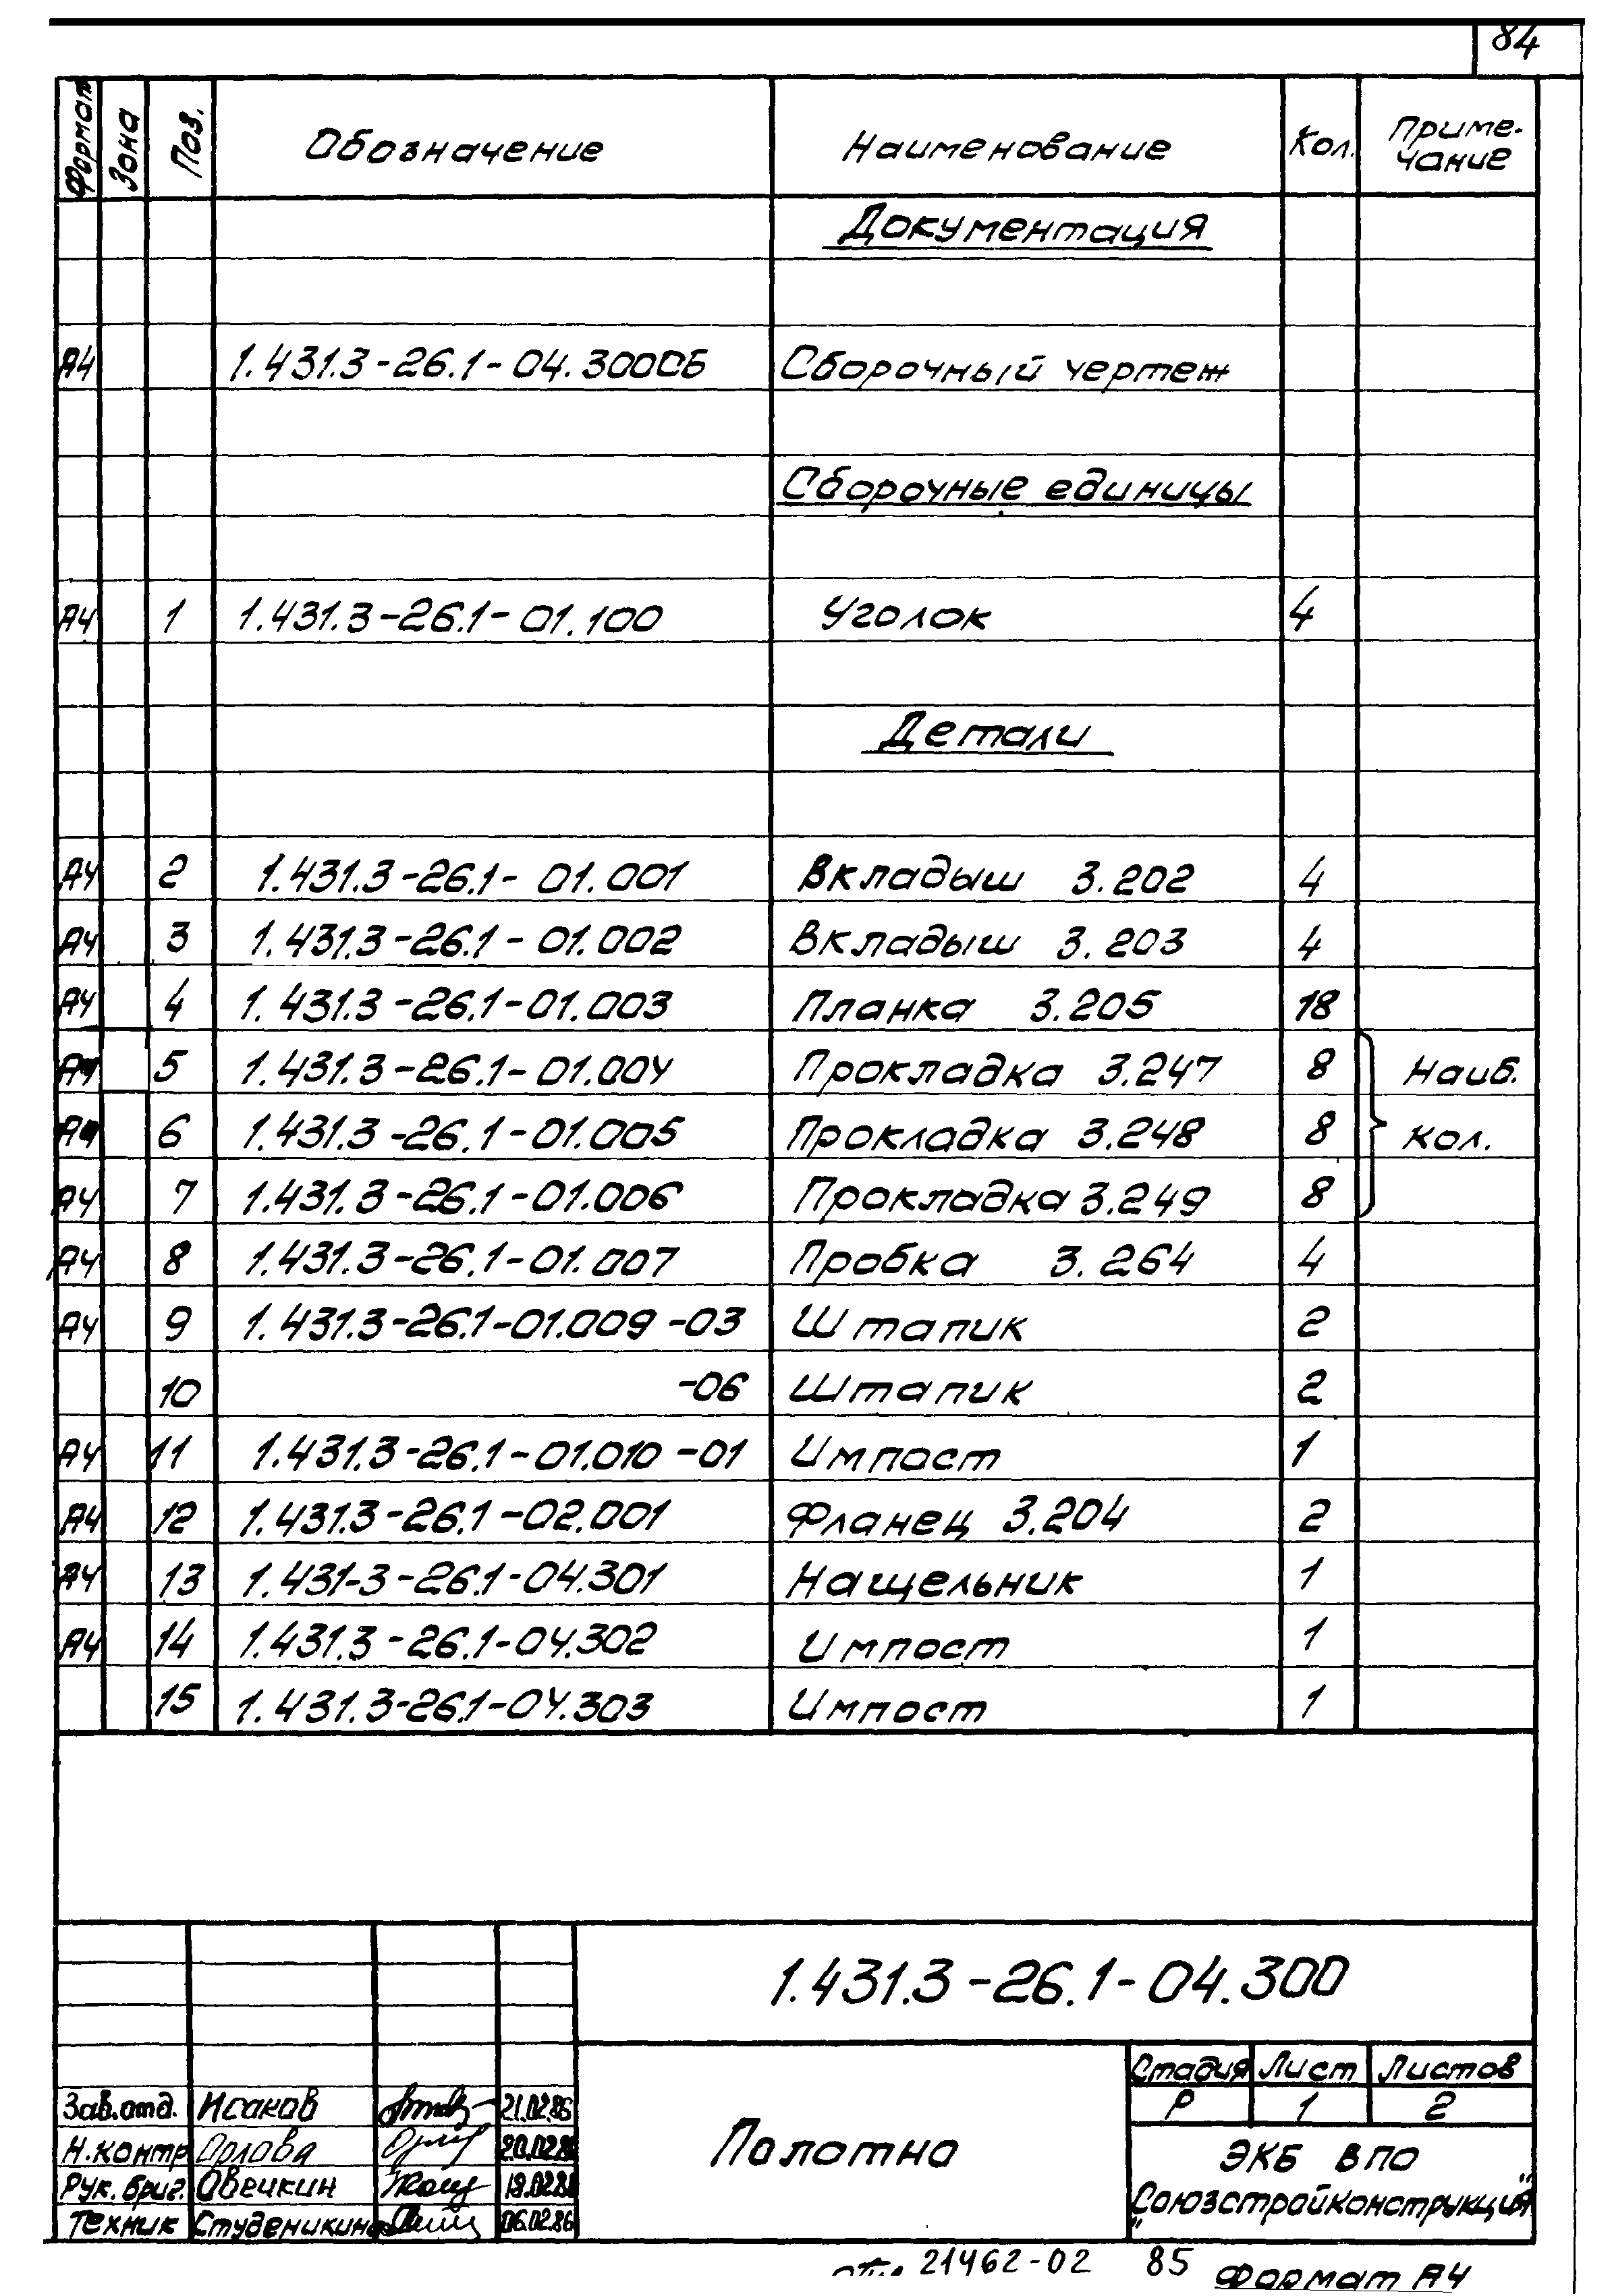 84
Формат Зона Поз. Обозначение Наименование Кол. Приме-
чание
Документация
А4 1.431.3-26.1-04.300СБ Сборочный чертеж
Сборочные единицы
А4 1 1.431.3-26.1-01.100 Уголок 4
Детали
А4 2 1.431.3-26.1-01.001 Вкладыш 3.202 4
А4 3 1.431.3-26.1-01.002 Вкладыш 3.203 4
А4 4 1.431.3-26.1-01.003 Планка 3.205 18
А4 5 1.431.3-26.1-01.004 Прокладка 3.247 8 Наиб.
А4 6 1.431.3-26.1-01.005 Прокладка 3.248 8 кол.
А4 7 1.431.3-26.1-01.006 Прокладка 3.249 8
А4 8 1.431.3-26.1-01.007 Пробка 3.264 4
А4 9 1.431.3-26.1-01.009-03 Штапик 2
10 -06 Штапик 2
А4 11 1.431.3-26.1-01.010-01 Импост 1
А4 12 1.431.3-26.1-02.001 Фланец 3.204 2
А4 13 1.431-3-26.1-04.301 Нащельник 1
А4 14 1.431.3-26.1-04.302 Импост 1
15 1.431.3-26.1-04.303 Импост 1
1.431.3-26.1-04.300
Стадия Лист Листов
Р 1 2
Зав.отд. Исаков 21.02.86
Н.контр Орлова 20.02.86
Рук.бриг. Овечкин 19.02.86
Техник Студеникина 06.02.86
Полотно
ЭКБ ВПО
"Союзстройконструкция"
21462-02 85 Формат А4